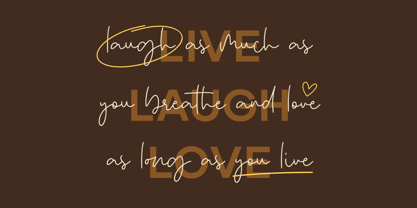 LIVE
laugh as much as
LAUGH
you breathe and love
LOVE
as long as you live